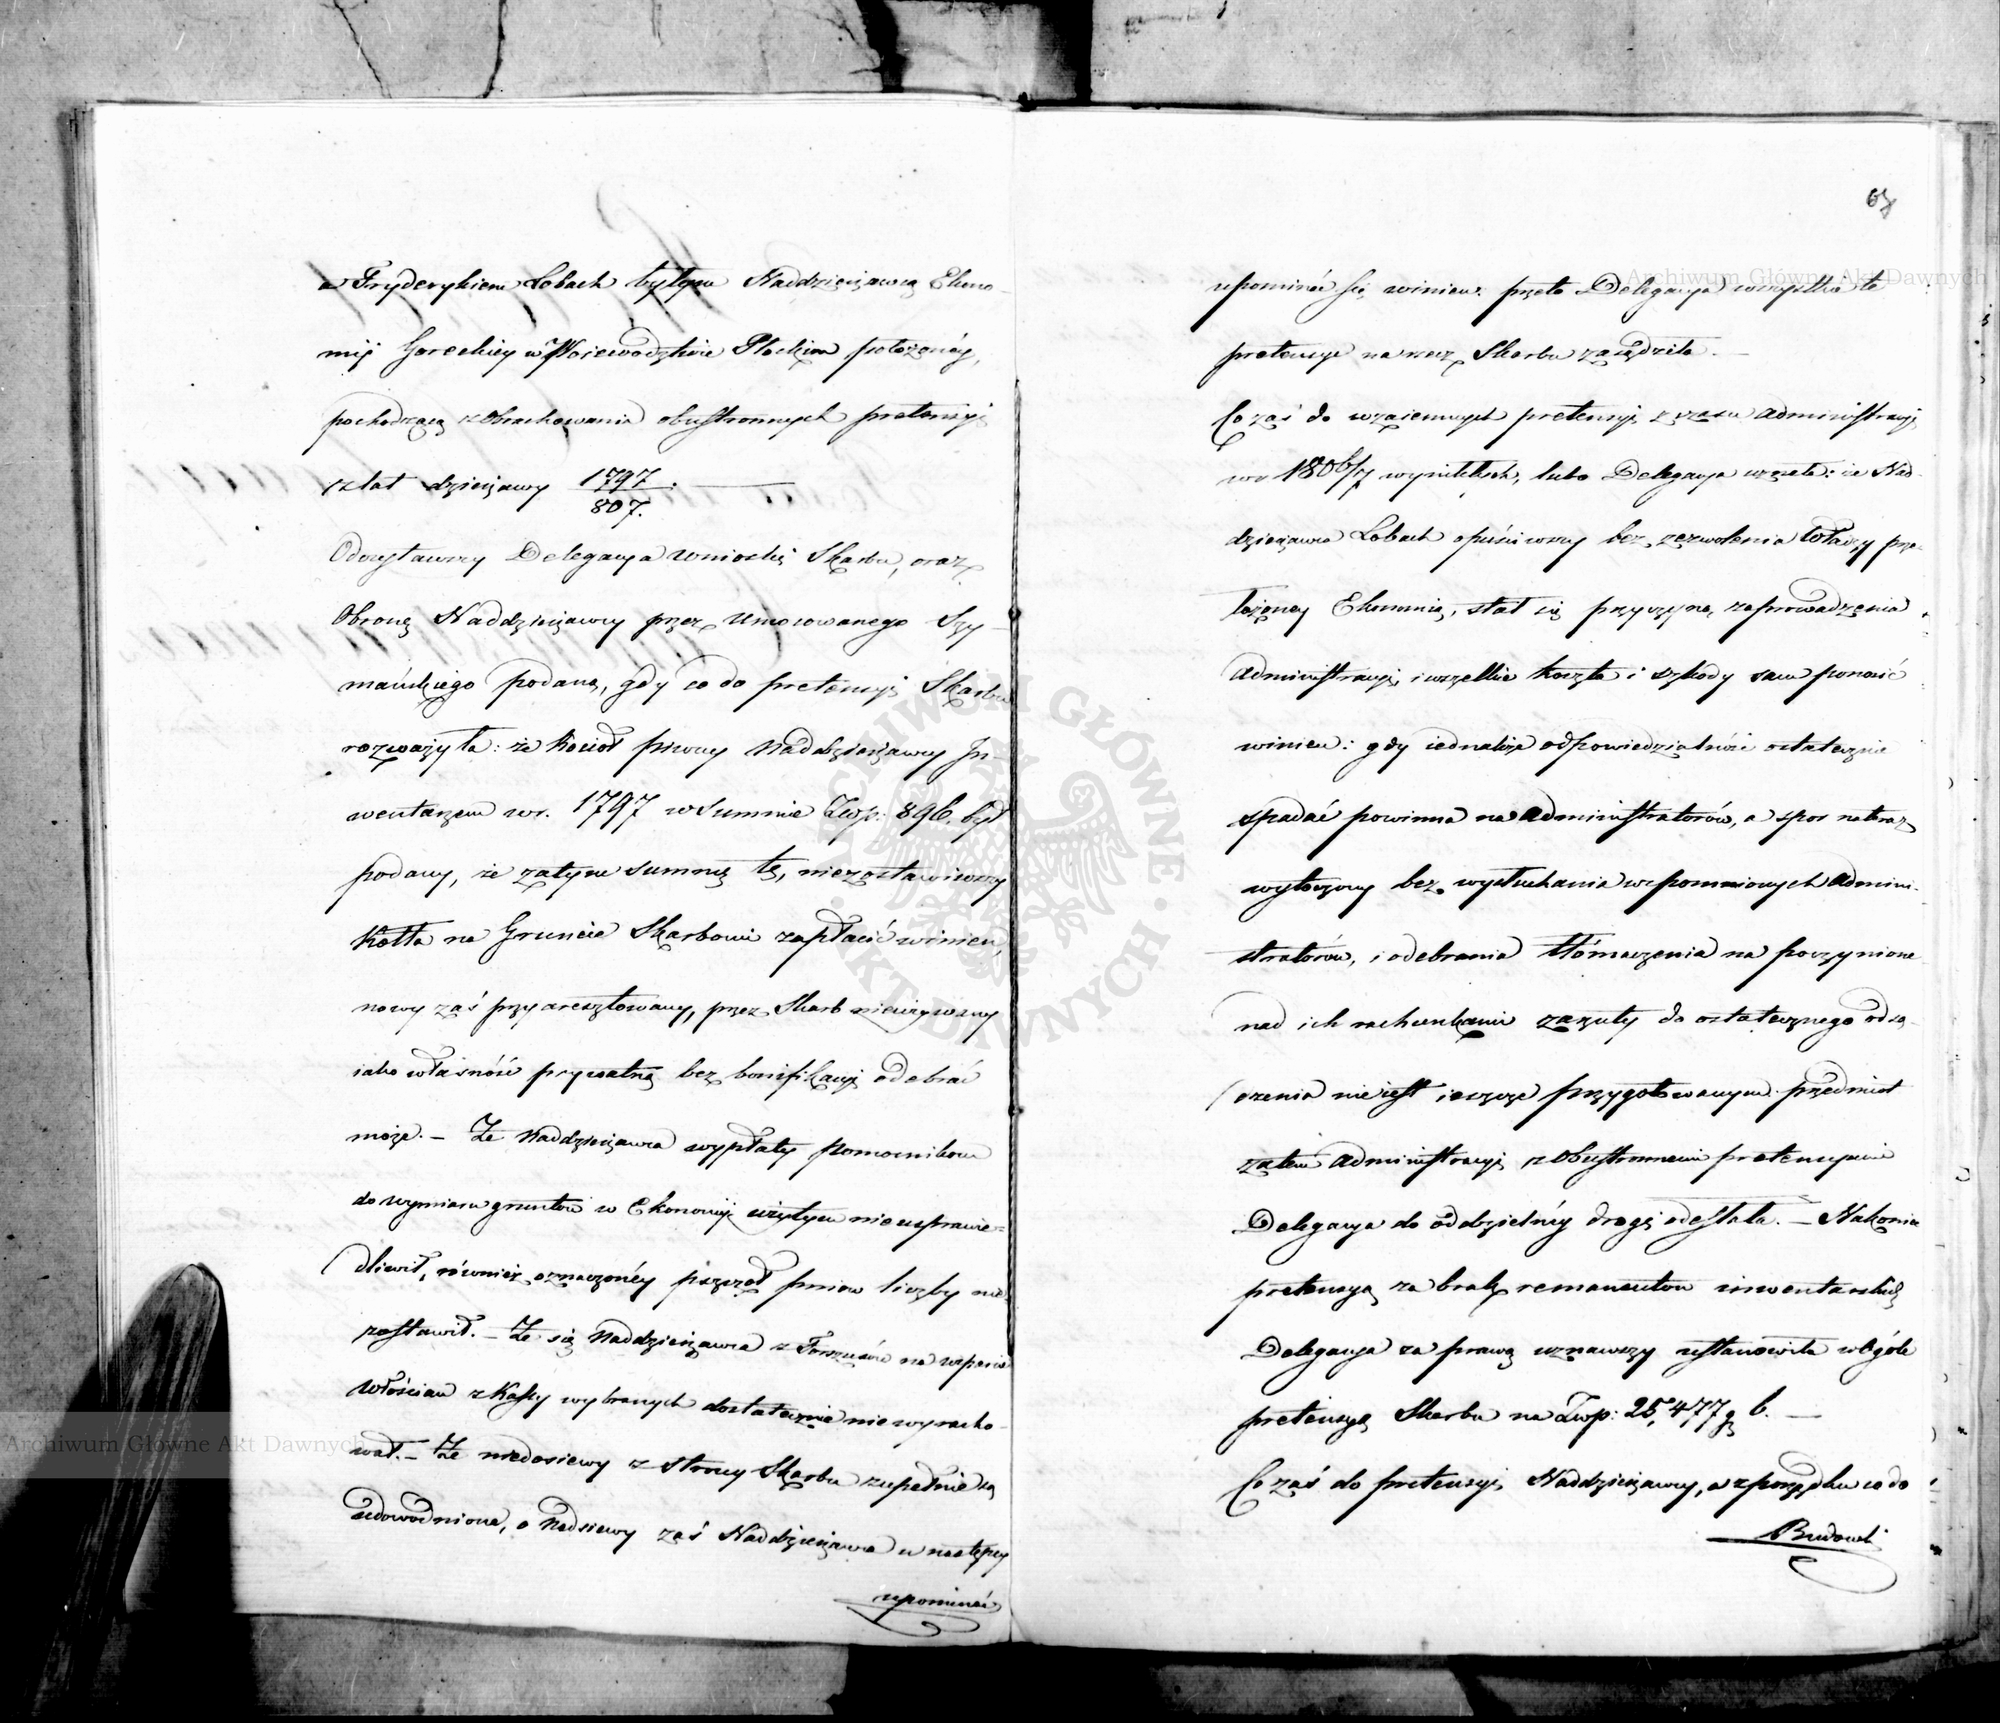 a Fryderykiem Lobach byłym Naddzierżawcą Ekono-
mij Goreckiey w Woiewodztwie Płockim położonéy,
pochodzącą z obrachowania obustronnych pretensyi
z lat dzierżawy 1797/807.
Odczytawszy Delegacya wnioski Skarbu, oraz
Obronę Naddzierżawcy przez umocowanego Szy-
mańskiego podaną, gdy co do pretensyi Skarbu
rozważyła: że kocioł piwny Naddzierżawcy In-
wentarzem w r. 1797 w summie Złp: 896. był
podany, że zatym summę tę, niezostawiwszy
Kotła na Gruncie Skarbowi zapłacić winien,
nowy zaś przyaresztowany, przez Skarb nieużywany
iako własność prywatną bez bonifikacyi odebrać
może. – Że Naddzierżawca wypłaty pomocnikom
do wymiaru gruntów w Ekonomij użytym nieusprawie-
dliwił, również oznaczonéy pszczół pniow liczby nie
zostawił. – Że się Naddzierżawca z Forszusów na wsparcie
włościan z Kassy wybranych dostatecznie nie wyracho-
wał. – Że niedosiewy z strony Skarbu zupełnie są
udowodnione, o nadsiewy zaś Naddzierżawca u następcy
upominać
67
upominać się winien: przeto Delegacya wszystkie te
pretensye na rzecz Skarbu zasądziła. –
Co zaś do wzaiemnych pretensyi z czasu administracyi
w r 1806/7 wynikłych, lubo Delegacya uznała: że Nad-
dzierżawca Lobach opuściwszy bez zezwolenia władzy prze-
łożoney Ekonomię, stał się przyczyną zaprowadzenia
administracyi, i wszelkie koszta i szkody sam ponosić
winien: gdy iednakże odpowiedzialność ostatecznie
spadać powinna na administratorów, a spor nateraz
wytoczony bez wysłuchania wspomnionych admini-
stratorów, i odebrania tłómaczenia na poczynione
nad ich rachunkami zarzuty do ostatecznego osą-
dzenia nie iest ieszcze przygotowanym: przedmiot
zatem administracyi z obustronnemi pretensyami
Delegacya do oddzielnéy drogi odesłała. – Nakoniec
pretensyą za brak remanentow inwentarskich
Delegacya za prawą uznawszy ustanowiła wogóle
pretensyą Skarbu na Złp: 25,477 g 6. –
Co zaś do pretensyi Naddzierżawcy, a z porządku co do
Budowli
Archiwum Główne Akt Dawnych
Archiwum Główne Akt Dawnych
ARCHIWUM GŁÓWNE · AKT DAWNYCH ·